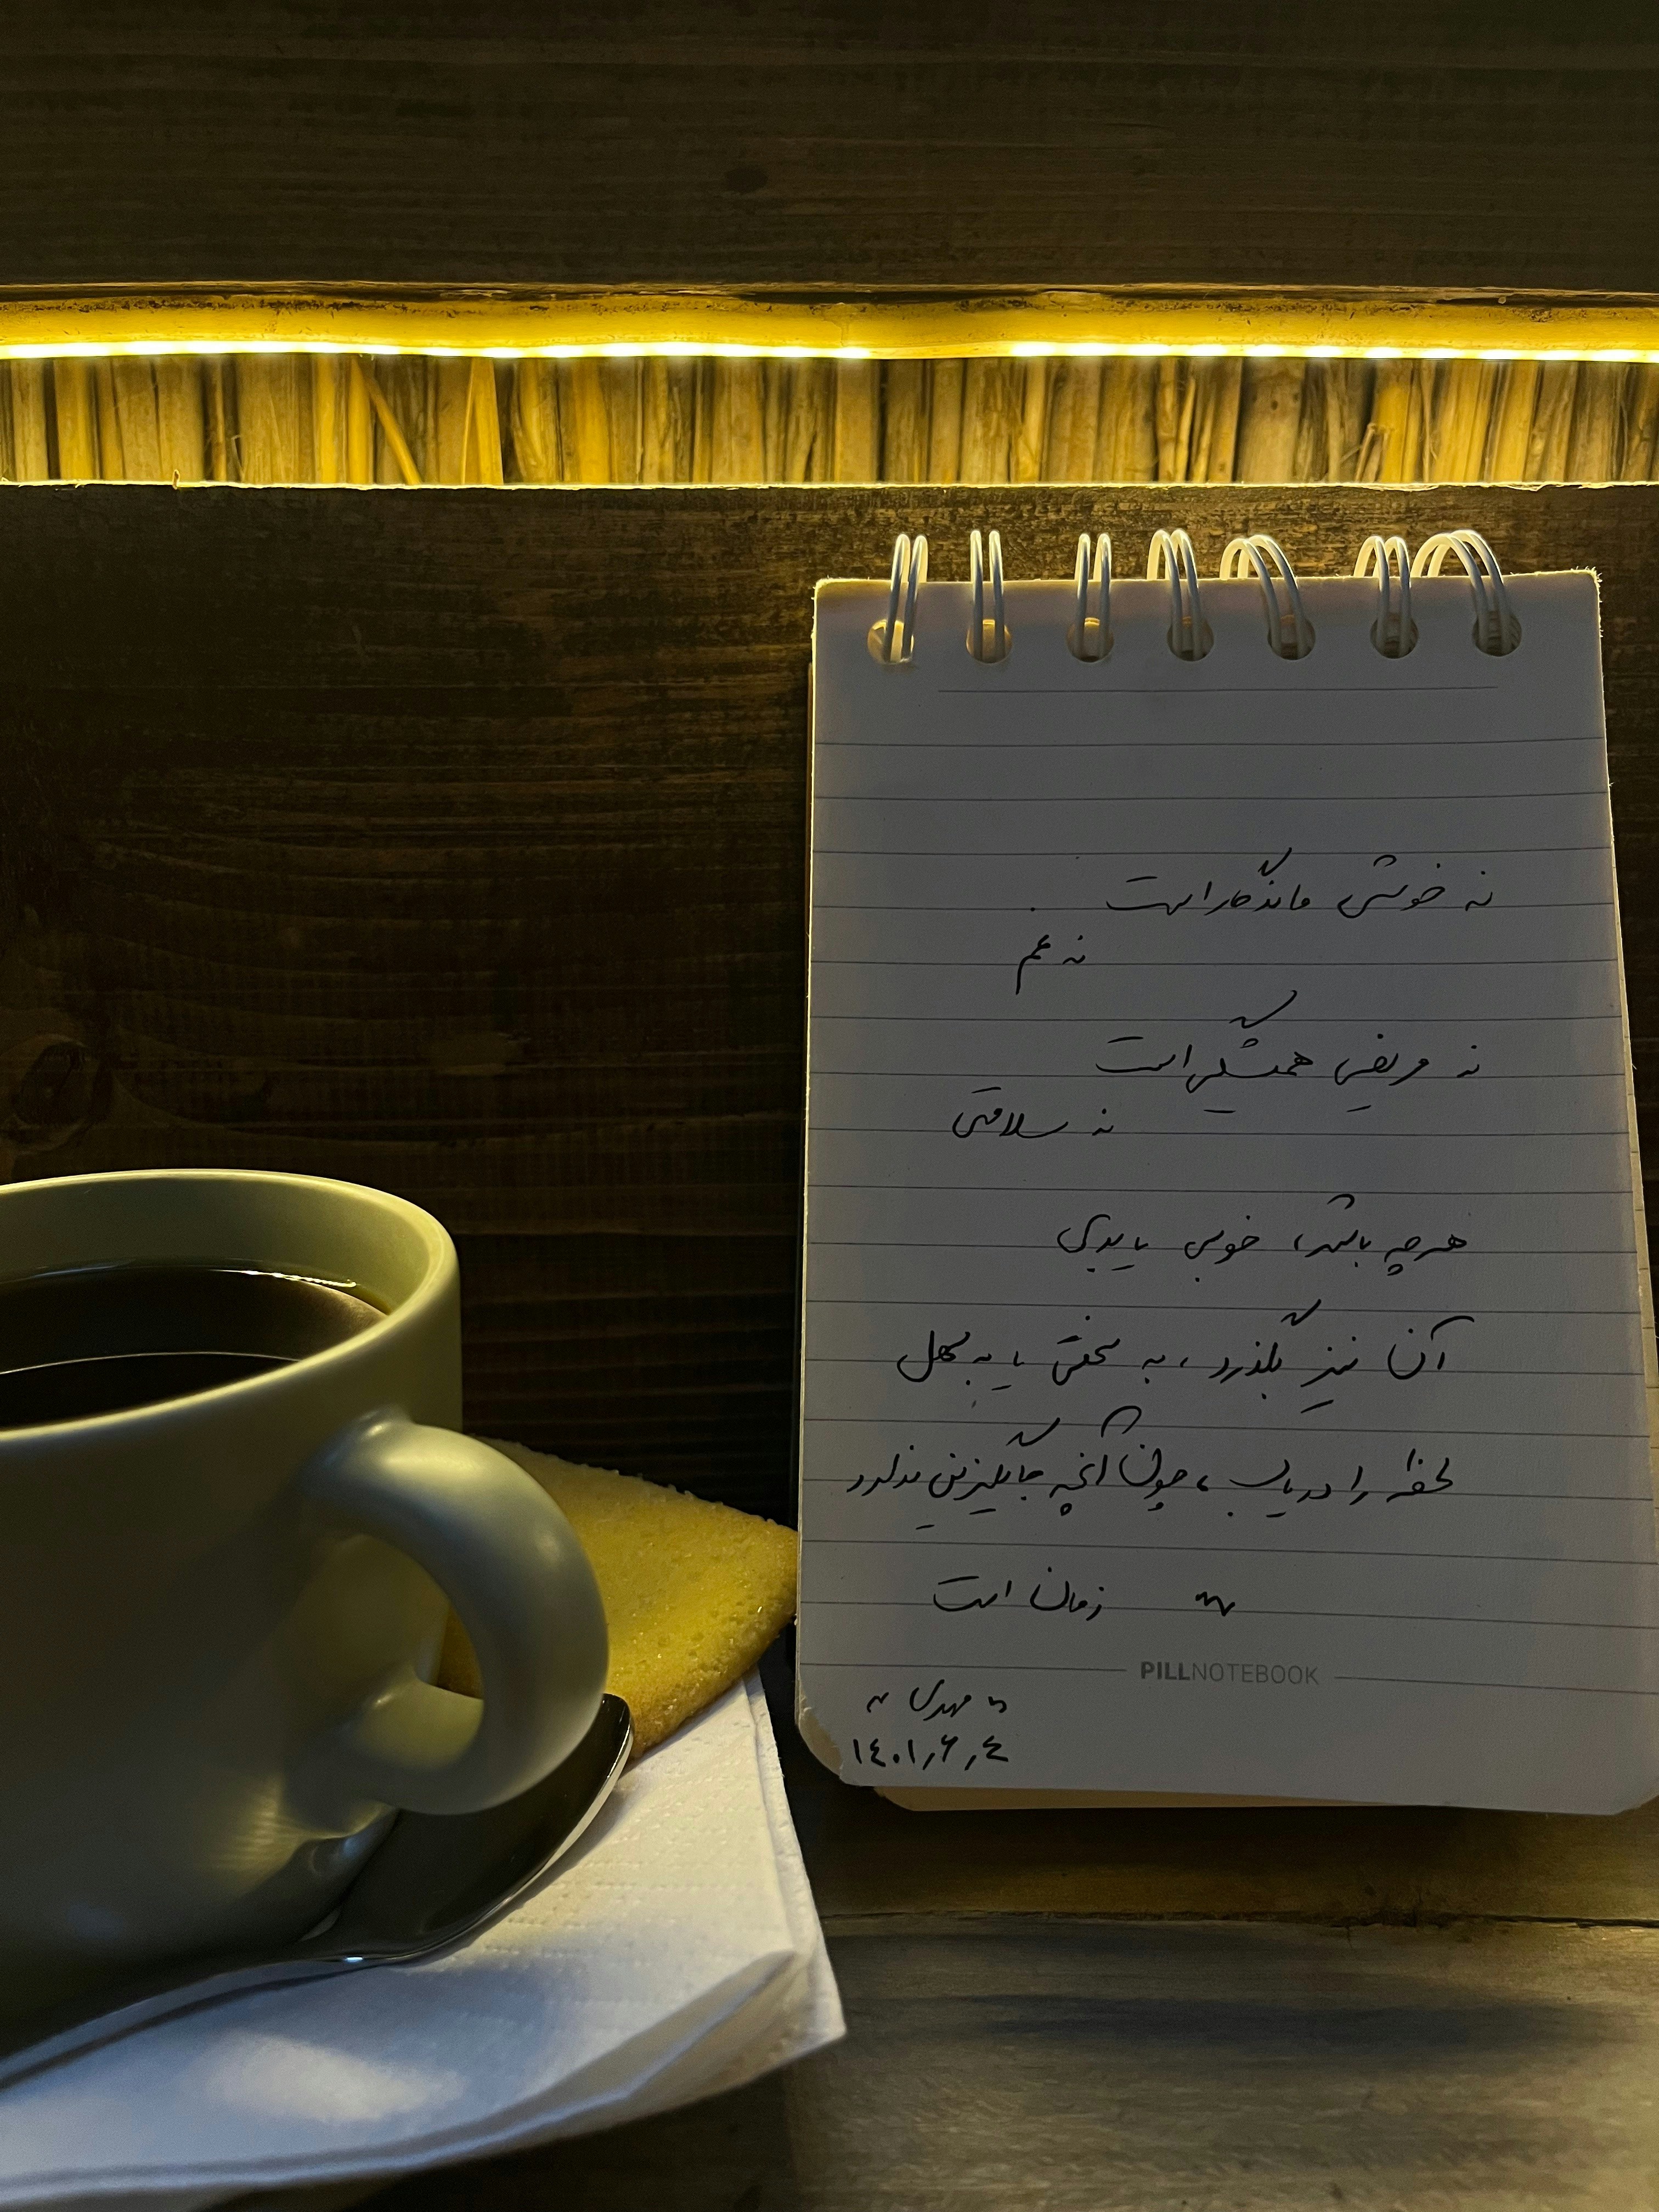 نه خوشی ماندگار است
نه غم
نه مریضی همیشگی است
نه سلامتی
هرچه باشد، خوبی یا بدی
آن نیز بگذرد، به سختی یا به سهل
لحظه را دریاب، چون آنچه جایگزینی ندارد
~ زمان است
PILLNOTEBOOK
~ مهدی ~
١٤٠١,٦,٤